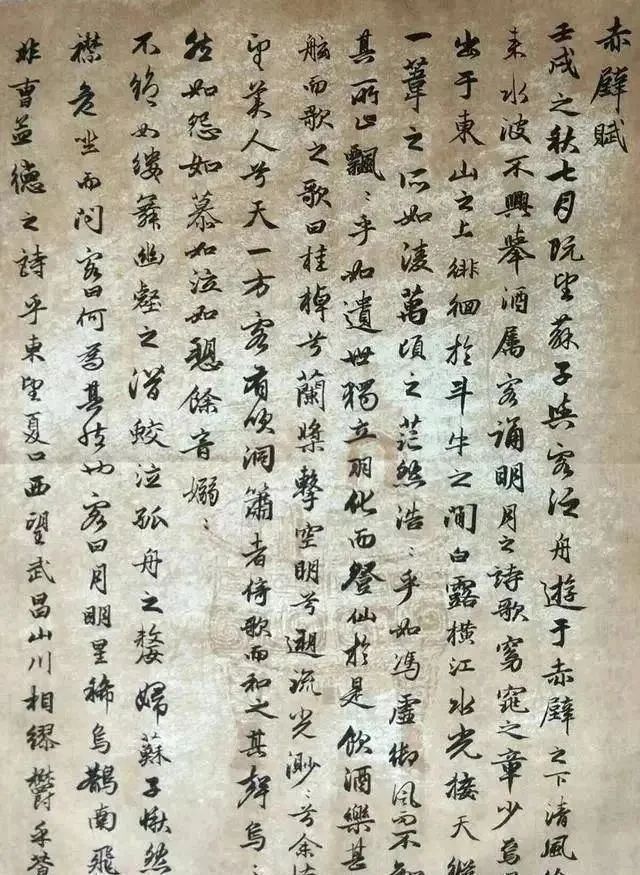 赤壁賦
壬戌之秋七月既望蘇子與客泛舟遊于赤壁之下清風
來水波不興舉酒属客誦明月之詩歌窈窕之章少焉
出于東山之上徘徊於斗牛之間白露橫江水光接天縱
一葦之所如凌萬頃之茫然浩〻乎如馮虛御風而不知
其所止飄〻乎如遺世獨立羽化而登仙於是飲酒樂甚
舷而歌之歌曰桂棹兮蘭槳擊空明兮遡流光渺〻兮余懷
望美人兮天一方客有吹洞簫者倚歌而和之其聲烏〻
然如怨如慕如泣如愬餘音嫋〻
不絕如縷舞幽壑之潛蛟泣孤舟之嫠婦蘇子愀然
襟危坐而問客曰何為其然也客曰月明星稀烏鵲南飛
非曹孟德之詩乎東望夏口西望武昌山川相繆鬱乎蒼